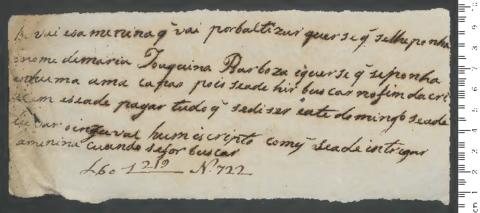 vai esa menina q̃ vai por baltizar quer se q̃ se lhe ponha
o nome de maria Joaquina Barboza e quer se q̃ se ponha
en huma ama capas pois se ade hir buscar no fim da cri
eseade pagar tudo q̃ se di ser e ate domingo se ade
hum escripto com q̃ se ade intrigar
a menina cuando se for buscar
L.60 1219 N.º 722